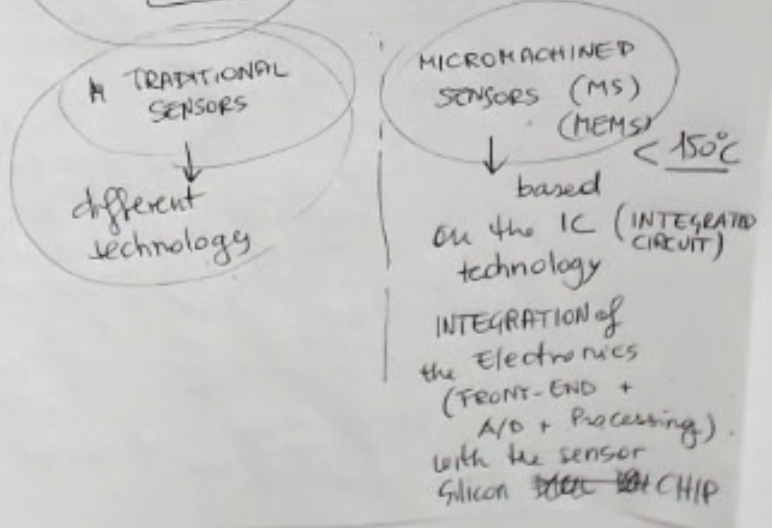 TRADITIONAL
SENSORS
different
technology
MICROMACHINED
SENSORS (MS)
(MEMS)
< 150°C
based
on the IC (INTEGRATED
CIRCUIT)
technology
INTEGRATION of
the Electronics
(FRONT-END +
A/D + Processing)
with the sensor
Silicon CHIP